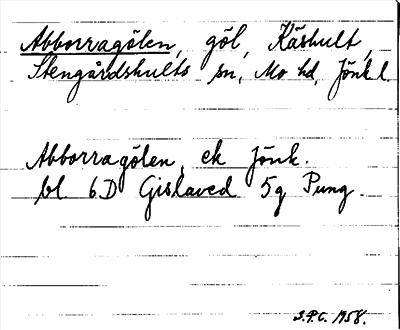 Abborragölen, göl, Kåshult,
Stengårdshults sn, Mo hd, Jönk l
Abborragölen, ek Jönk.
bl 6D Gislaved 5g Pung.
S.F.C. 1958.